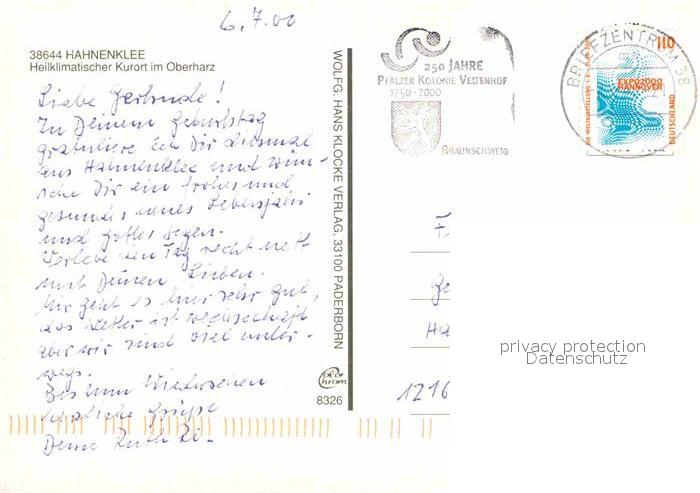 6.7.00
38644 HAHNENKLEE
Heilklimatischer Kurort im Oberharz
Liebe Gertrude!
Zu Deinem Geburtstag
gratuliere ich Dir diesmal
aus Hahnenklee und wün-
sche Dir ein frohes und
gesundes neues Lebensjahr
und Gottes Segen.
Verlebe den Tag recht nett
mit Deinen Lieben.
Mir geht es hier sehr gut,
das Wetter ist wechselhaft
aber wir sind viel unter-
wegs.
Bis zum Wiedersehen
herzliche Grüße
Deine Ruth
WOLFG. HANS KLOCKE VERLAG, 33100 PADERBORN
8326
250 JAHRE
PFÄLZER KOLONIE VELTENHOF
1750-2000
BRAUNSCHWEIG
BRIEFZENTRUM 38
110
EXPO2000
HANNOVER
DEUTSCHLAND
F
Ge
Ha
1216
privacy protection
Datenschutz